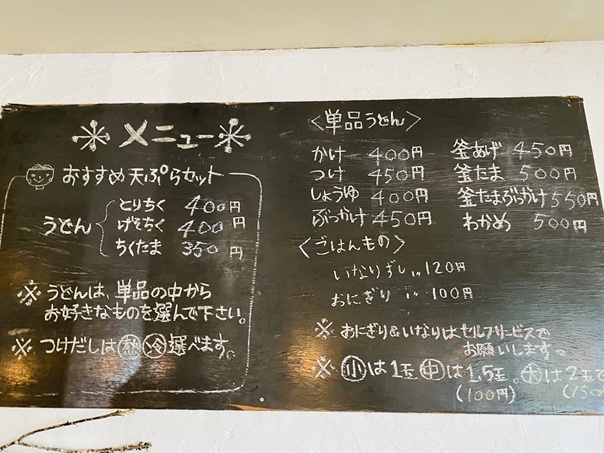 ※メニュー※
おすすめ天ぷらセット
うどん
とりちく 400円
げそちく 400円
ちくたま 350円
※ うどんは、単品の中から
お好きなものを選んで下さい。
※ つけだしは熱冷選べます。
〈単品うどん〉
かけ 400円
つけ 450円
しょうゆ 400円
ぶっかけ 450円
釜あげ 450円
釜たま 500円
釜たまぶっかけ 550円
わかめ 500円
〈ごはんもの〉
いなりずし 120円
おにぎり 100円
※ おにぎり&いなりはセルフサービスで
お願いします。
※ 小は1玉 中は1.5玉。大は2玉で
(100円) (150